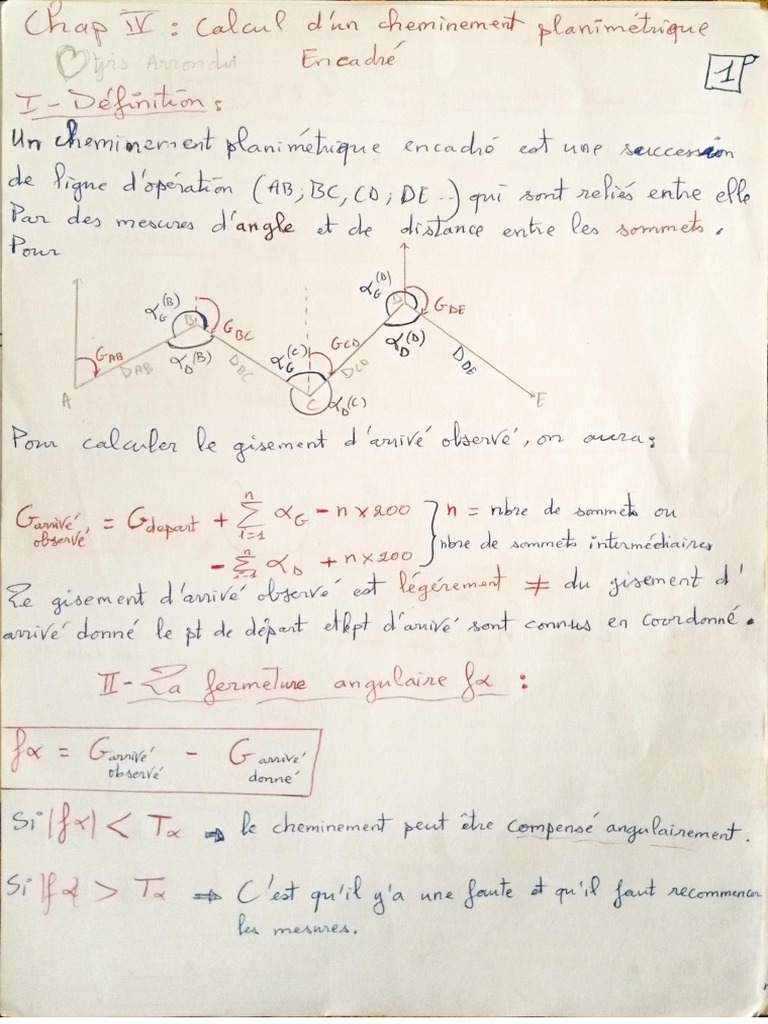 Chap IV : Calcul d'un cheminement planimétrique
Encadré
1P
I - Définition :
Un cheminement planimétrique encadré est une succession
de ligne d'opération (AB; BC, CD; DE --) qui sont reliés entre elle
Par des mesures d'angle et de distance entre les sommets.
Pour
α_G^(B) B G_BC α_G^(D) D G_DE
G_AB D_AB α_D^(B) D_BC α_G^(C) G_CD D_CD α_D^(D) D_DE
A C α_D(C) E
Pour calculer le gisement d'arrivé observé, on aura :
G arrivé observé = G depart + Σ_{i=1}^{n} α_G - n x 200 } n = nbre de sommets ou
- Σ_{i=1}^{n} α_D + n x 200 nbre de sommets intermédiaires
Le gisement d'arrivé observé est légérement ≠ du gisement d'
arrivé donné le pt de départ et le pt d'arrivé sont connus en coordonné.
II - La fermeture angulaire fα :
fα = G arrivé observé - G arrivé donné
Si |fα| < Tα ⇒ le cheminement peut être compensé angulairement.
Si |fα| > Tα ⇒ C'est qu'il y'a une faute et qu'il faut recommencer
les mesures.